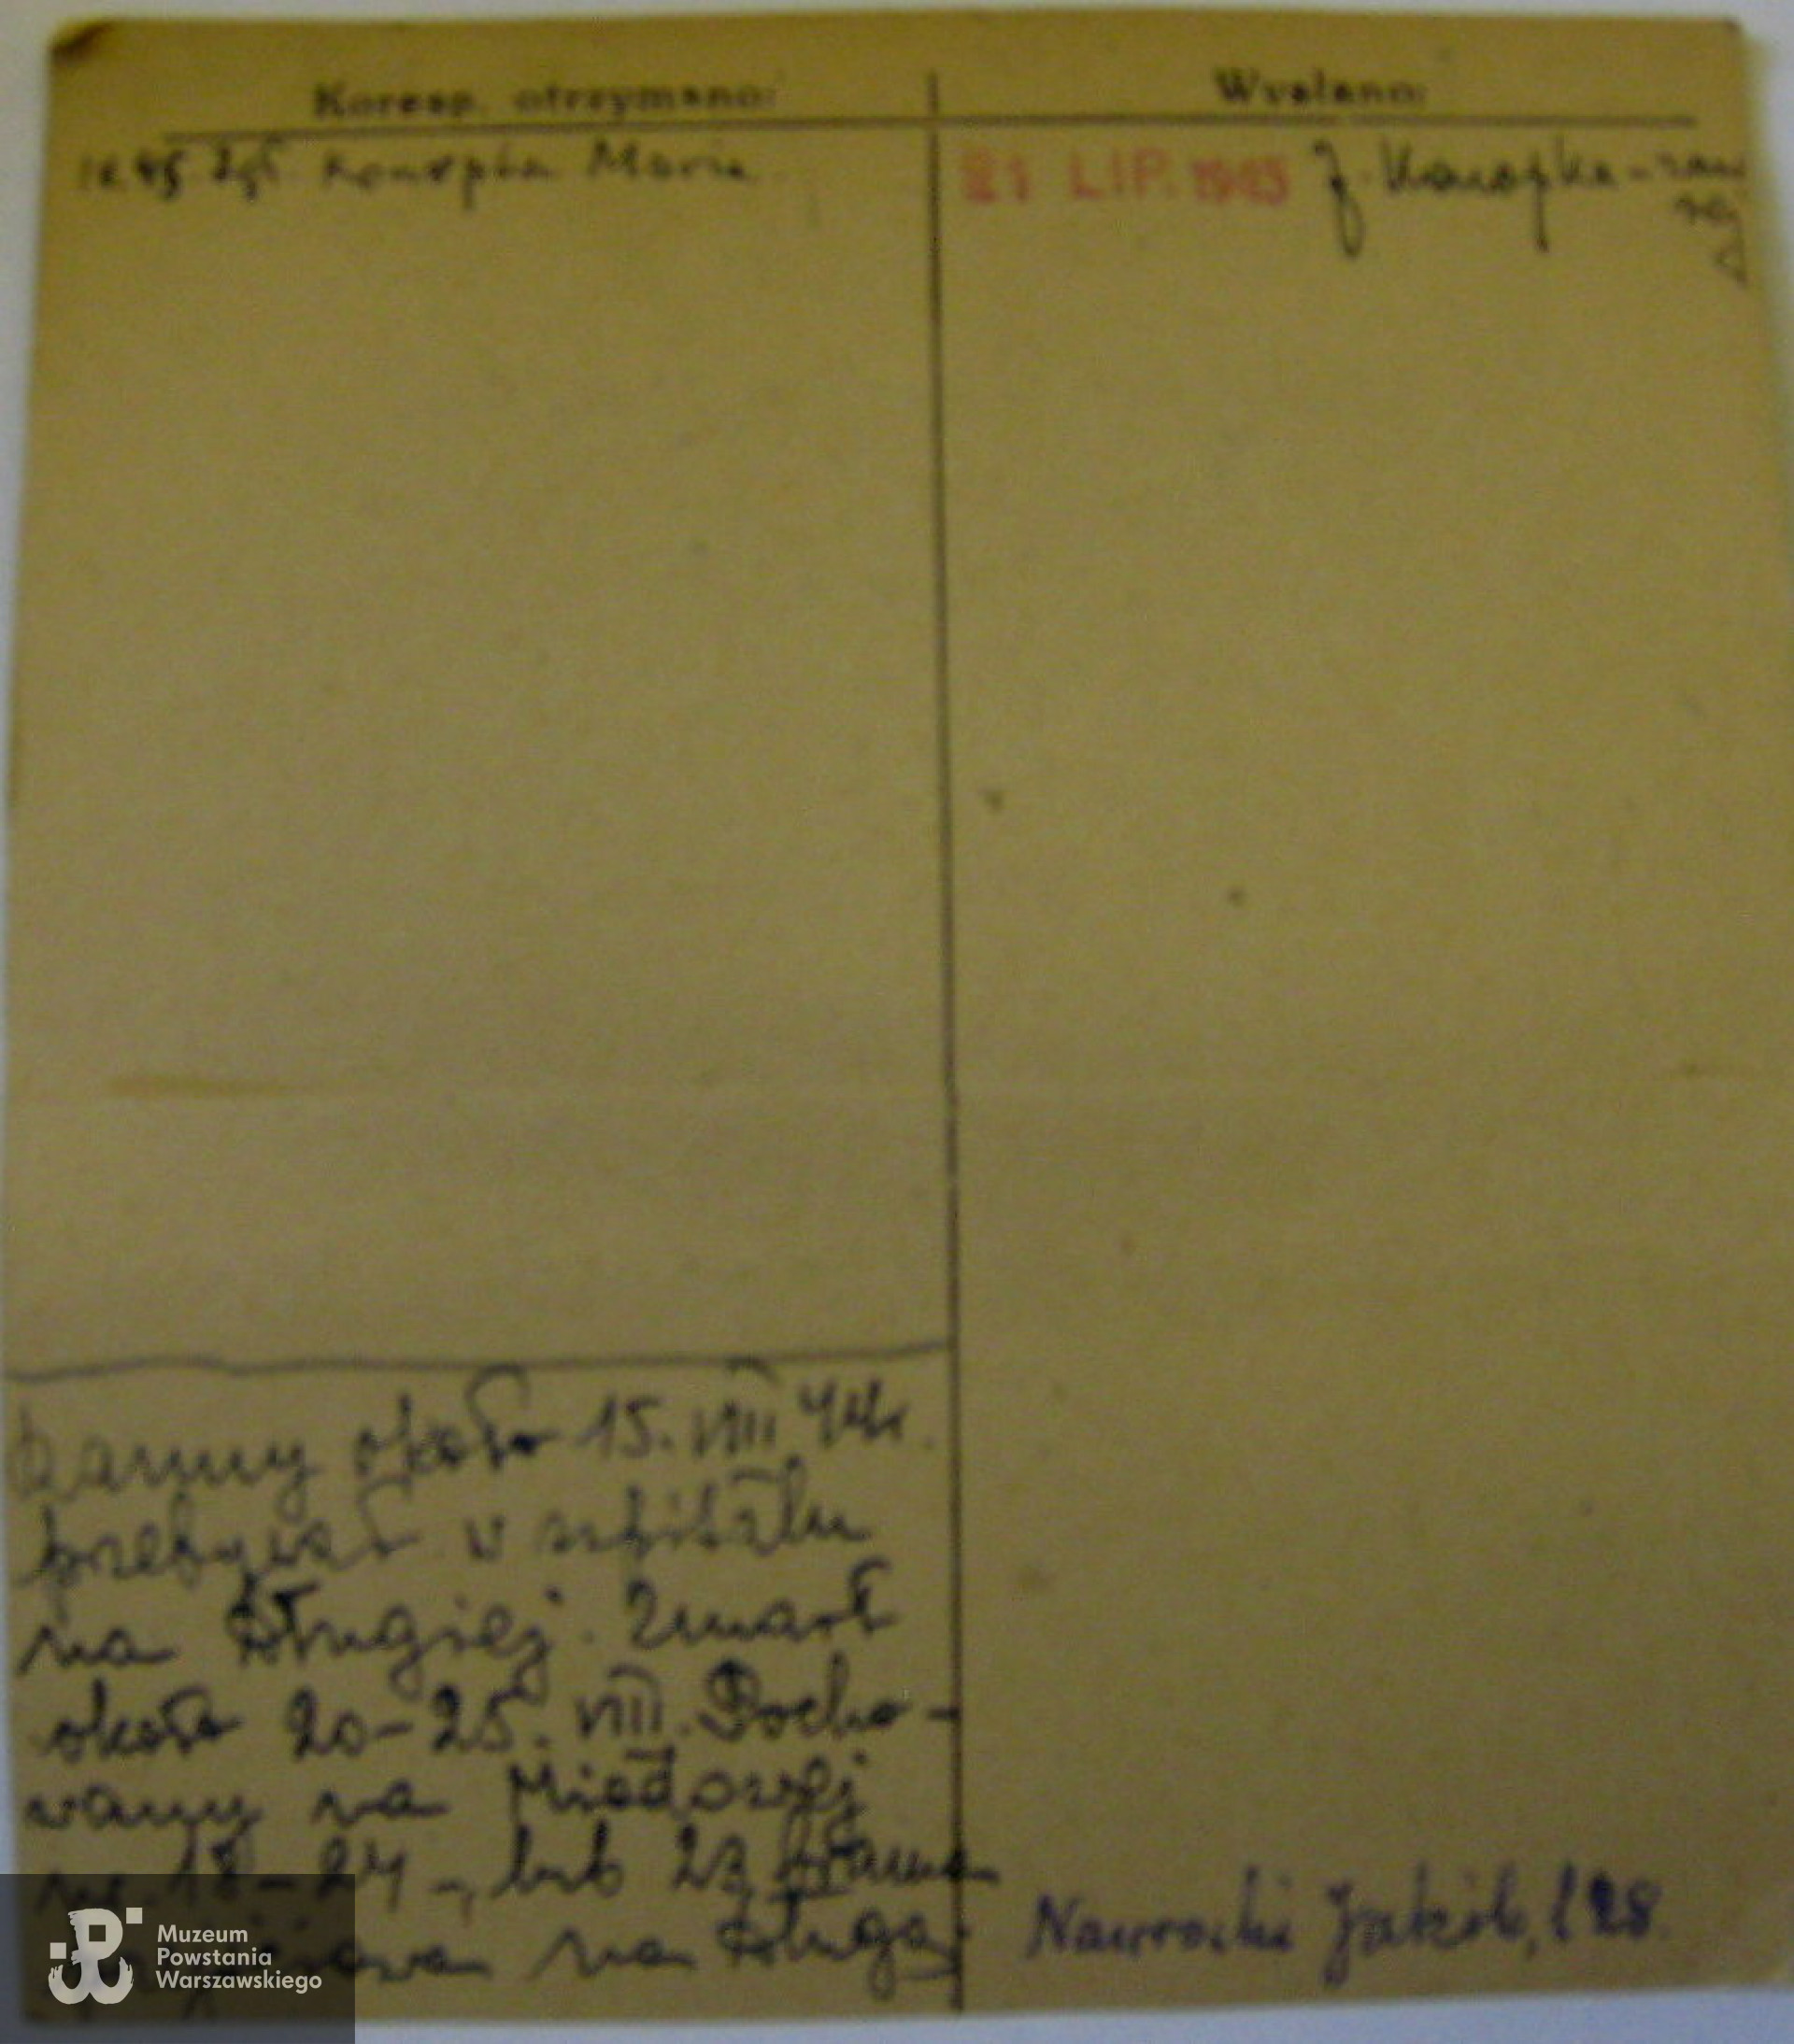 Koresp. otrzymano:
Wysłano:
45 zgł. Konopka Maria
21 LIP. 1945 J. Konopka -
ranny około 15. VIII 44r.
przebywał w szpitalu
na Długiej. Zmarł
około 20-25. VIII. Pocho-
wany na Miodowej
18-24, lub 23 brama
na Długą.
Nawrocki Jakób, l 28.
Muzeum
Powstania
Warszawskiego